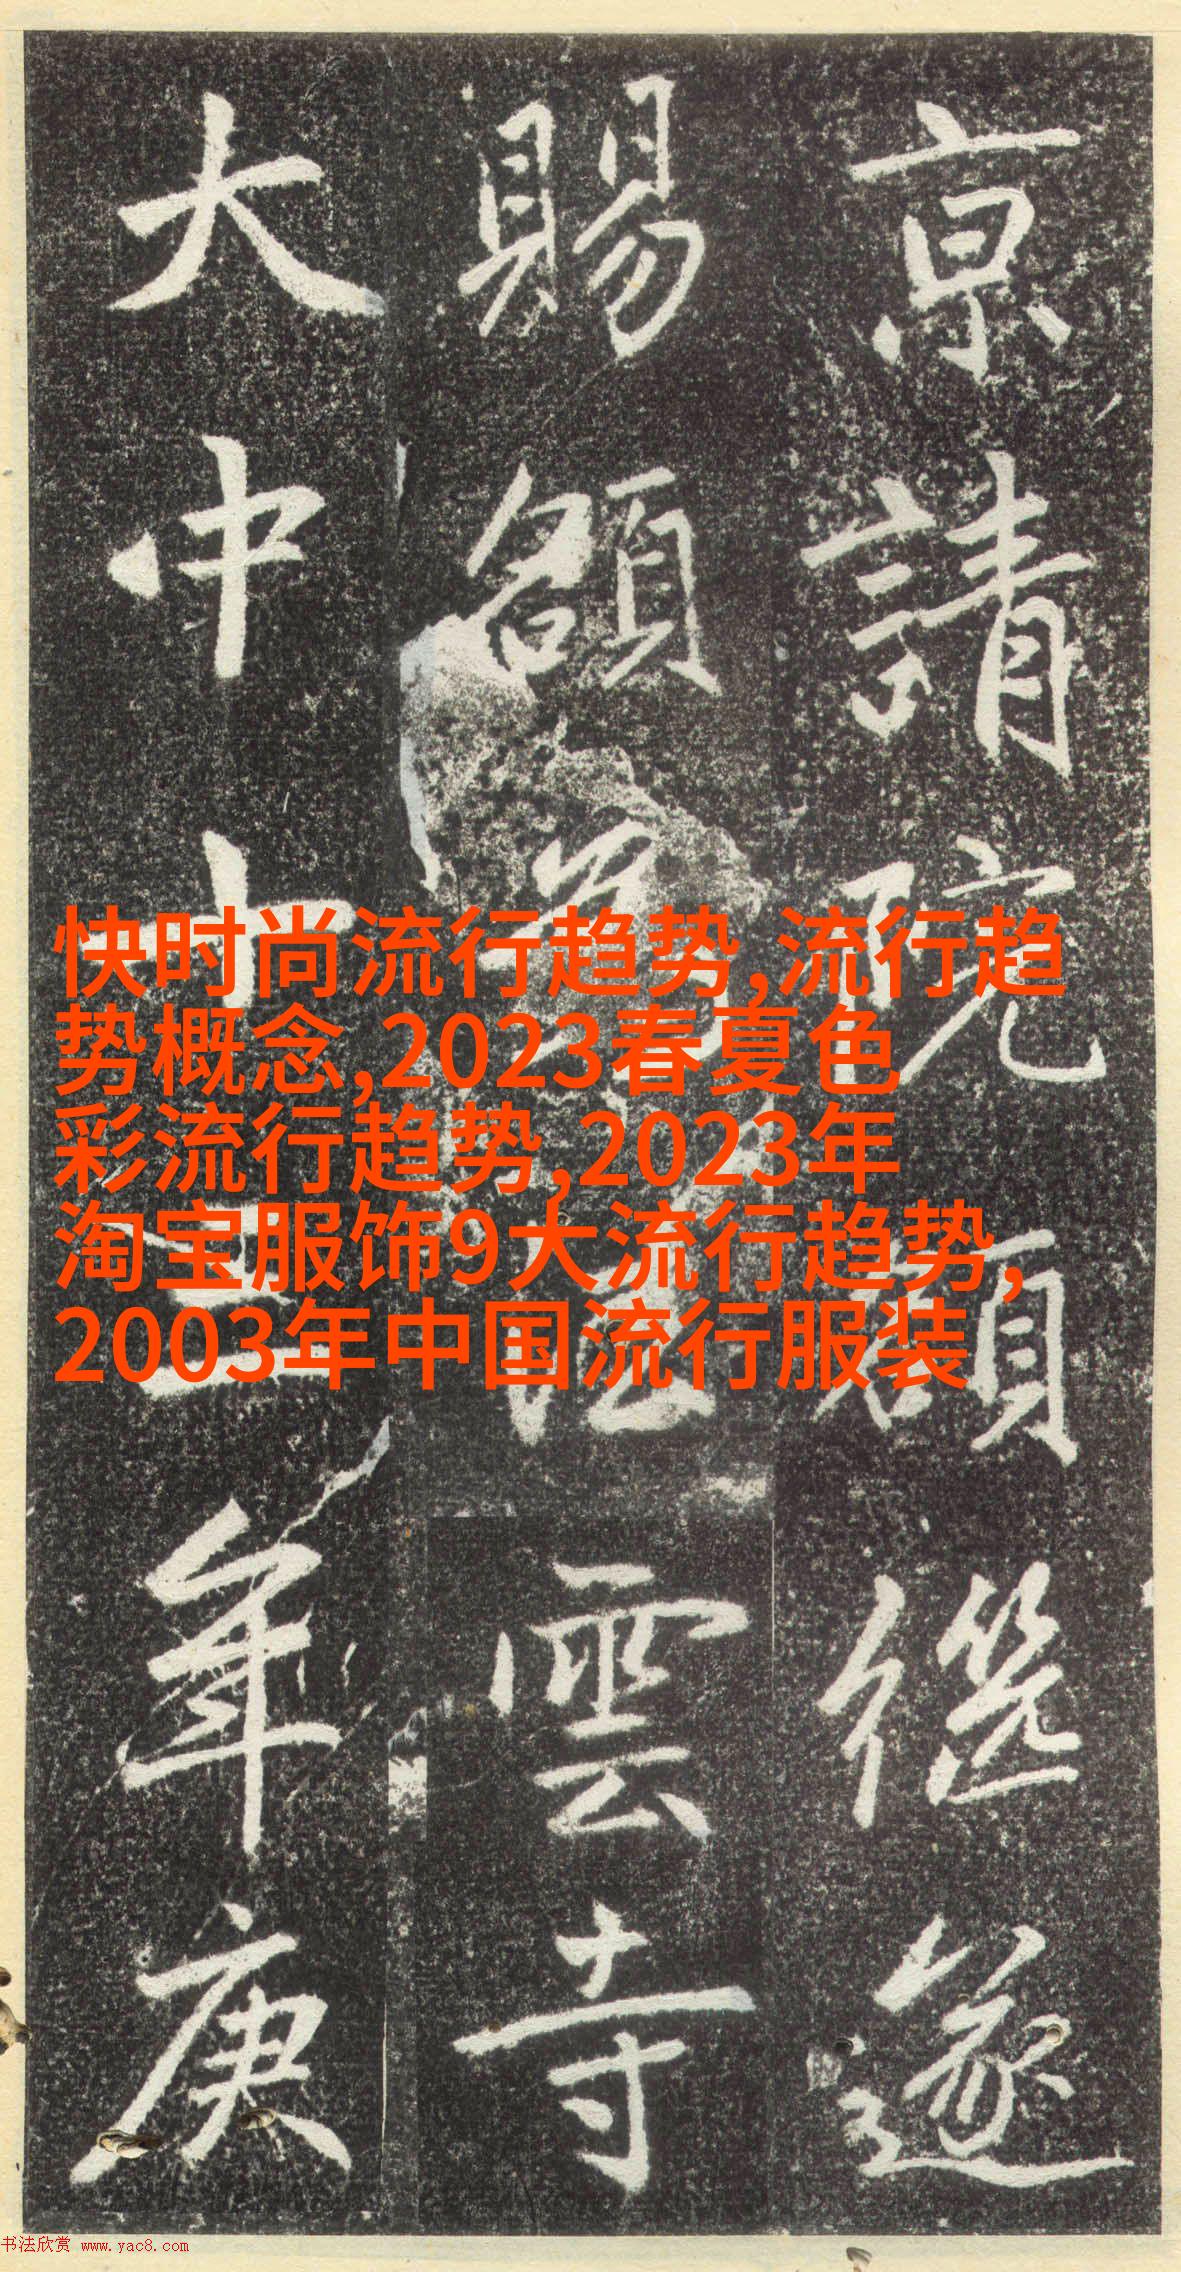 京請院額遂
賜額雲寺
大中十三年庚
快时尚流行趋势,流行趋
势概念,2023春夏色
彩流行趋势,2023年
淘宝服饰9大流行趋势,
2003年中国流行服装
书法欣赏 www.yac8.com